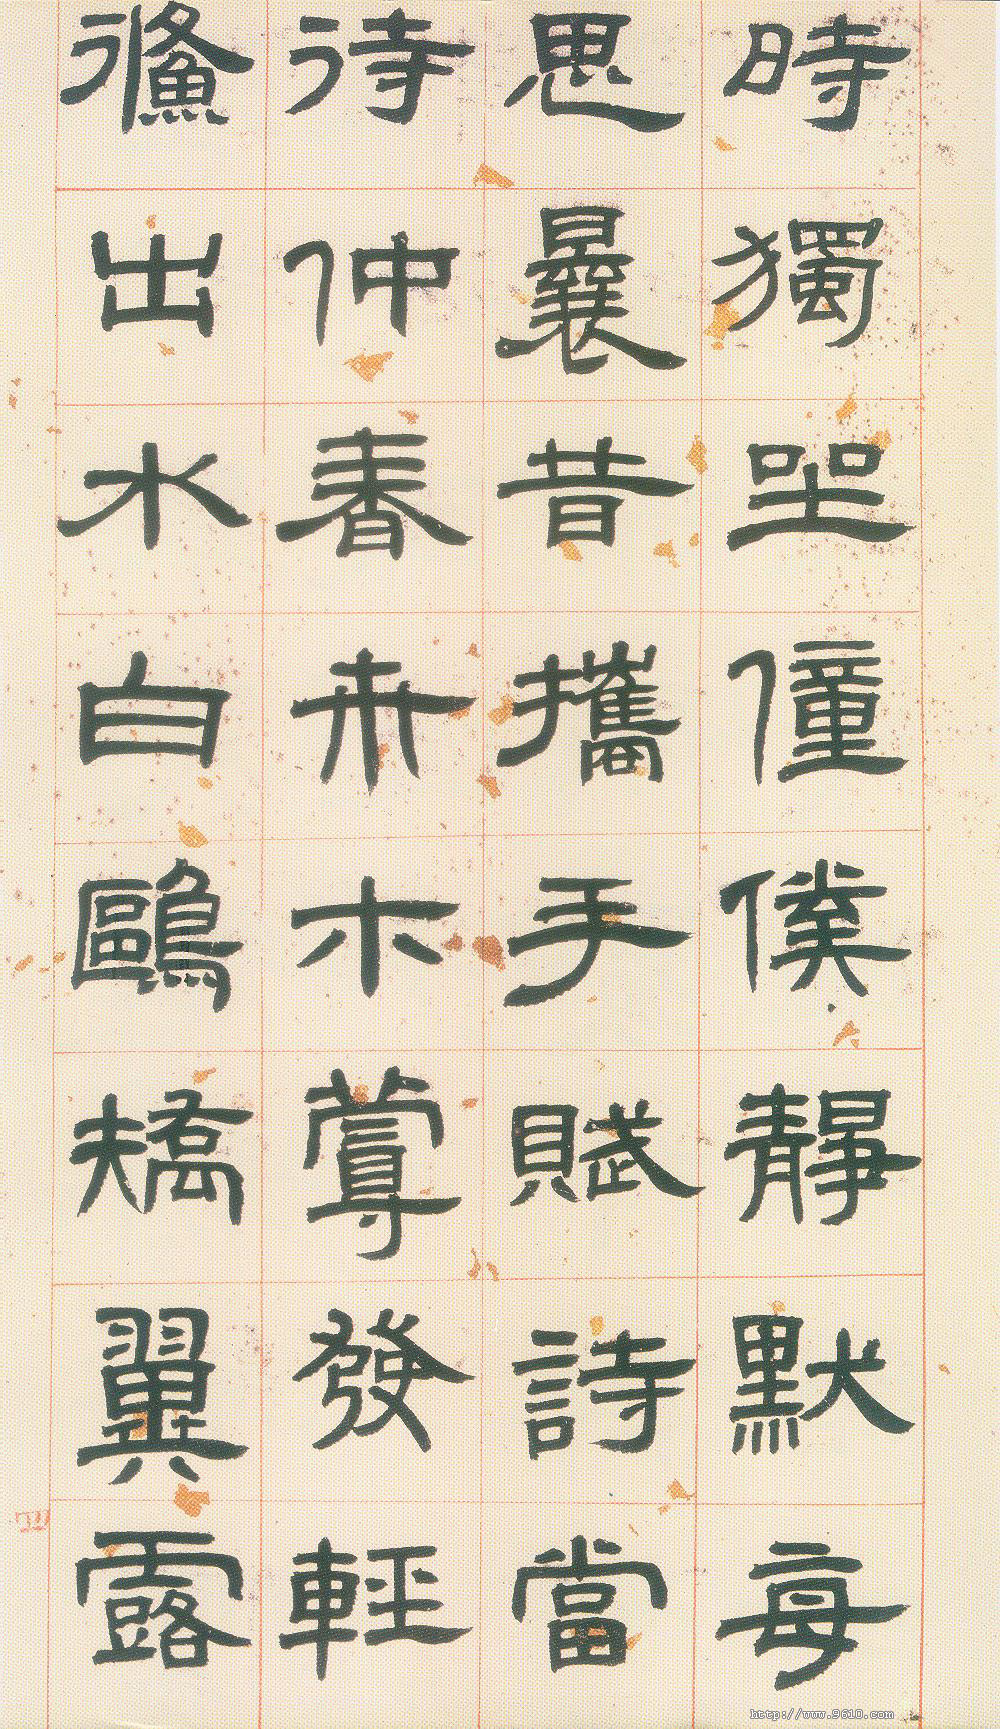 時獨坐僮僕靜默每
思曩昔攜手賦詩當
待仲春卉木蔓發輕
鯈出水白鷗矯翼露
http://www.9610.com